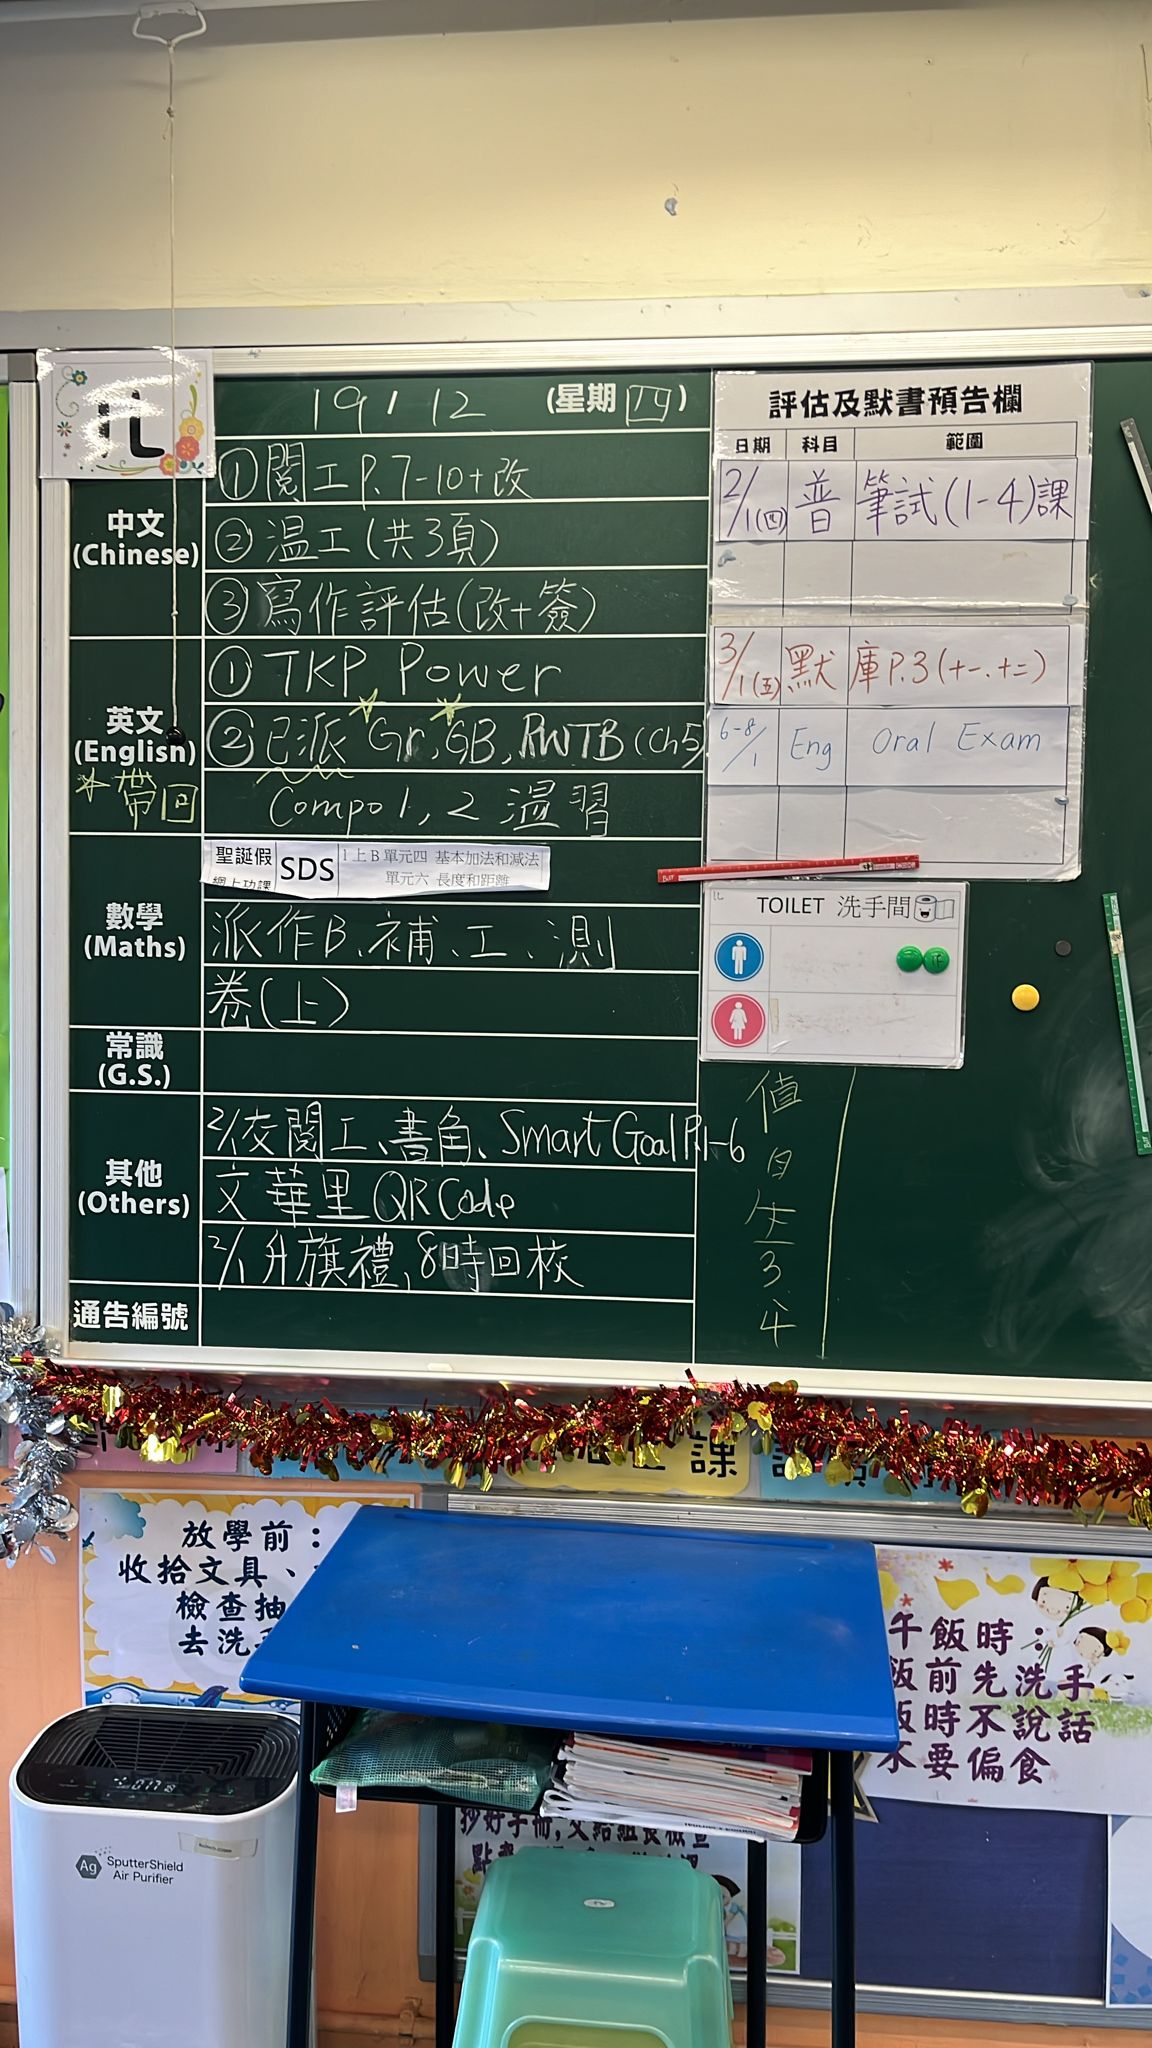 1L
19 / 12 (星期 四)
中文
(Chinese)
①閱工P.7-10+改
②温工(共3頁)
③寫作評估(改+簽)
英文
(English)
*帶回
①TKP Power
②已派 Gr, GB, RWTB (Ch5)
Compo 1, 2 溫習
數學
(Maths)
聖誕假
網上功課
SDS
1上B 單元四 基本加法和減法
單元六 長度和距離
派作B、補、工、測
卷(上)
常識
(G.S.)
其他
(Others)
2/1交閱工、書角、Smart Goal P.1-6
文華里 QR Code
2/1 升旗禮, 8時回校
通告編號
評估及默書預告欄
日期 科目 範圍
2/1(四) 普 筆試(1-4)課
3/1(五) 默 庫P.3(+-.+=)
6-8/1 Eng Oral Exam
1L
TOILET 洗手間
值
日
生
3
4
課
放學前：
收拾文具、
檢查抽
去洗手
午飯時：
飯前先洗手
飯時不說話
不要偏食
抄好手冊,交給組長檢查
Ag SputterShield
Air Purifier